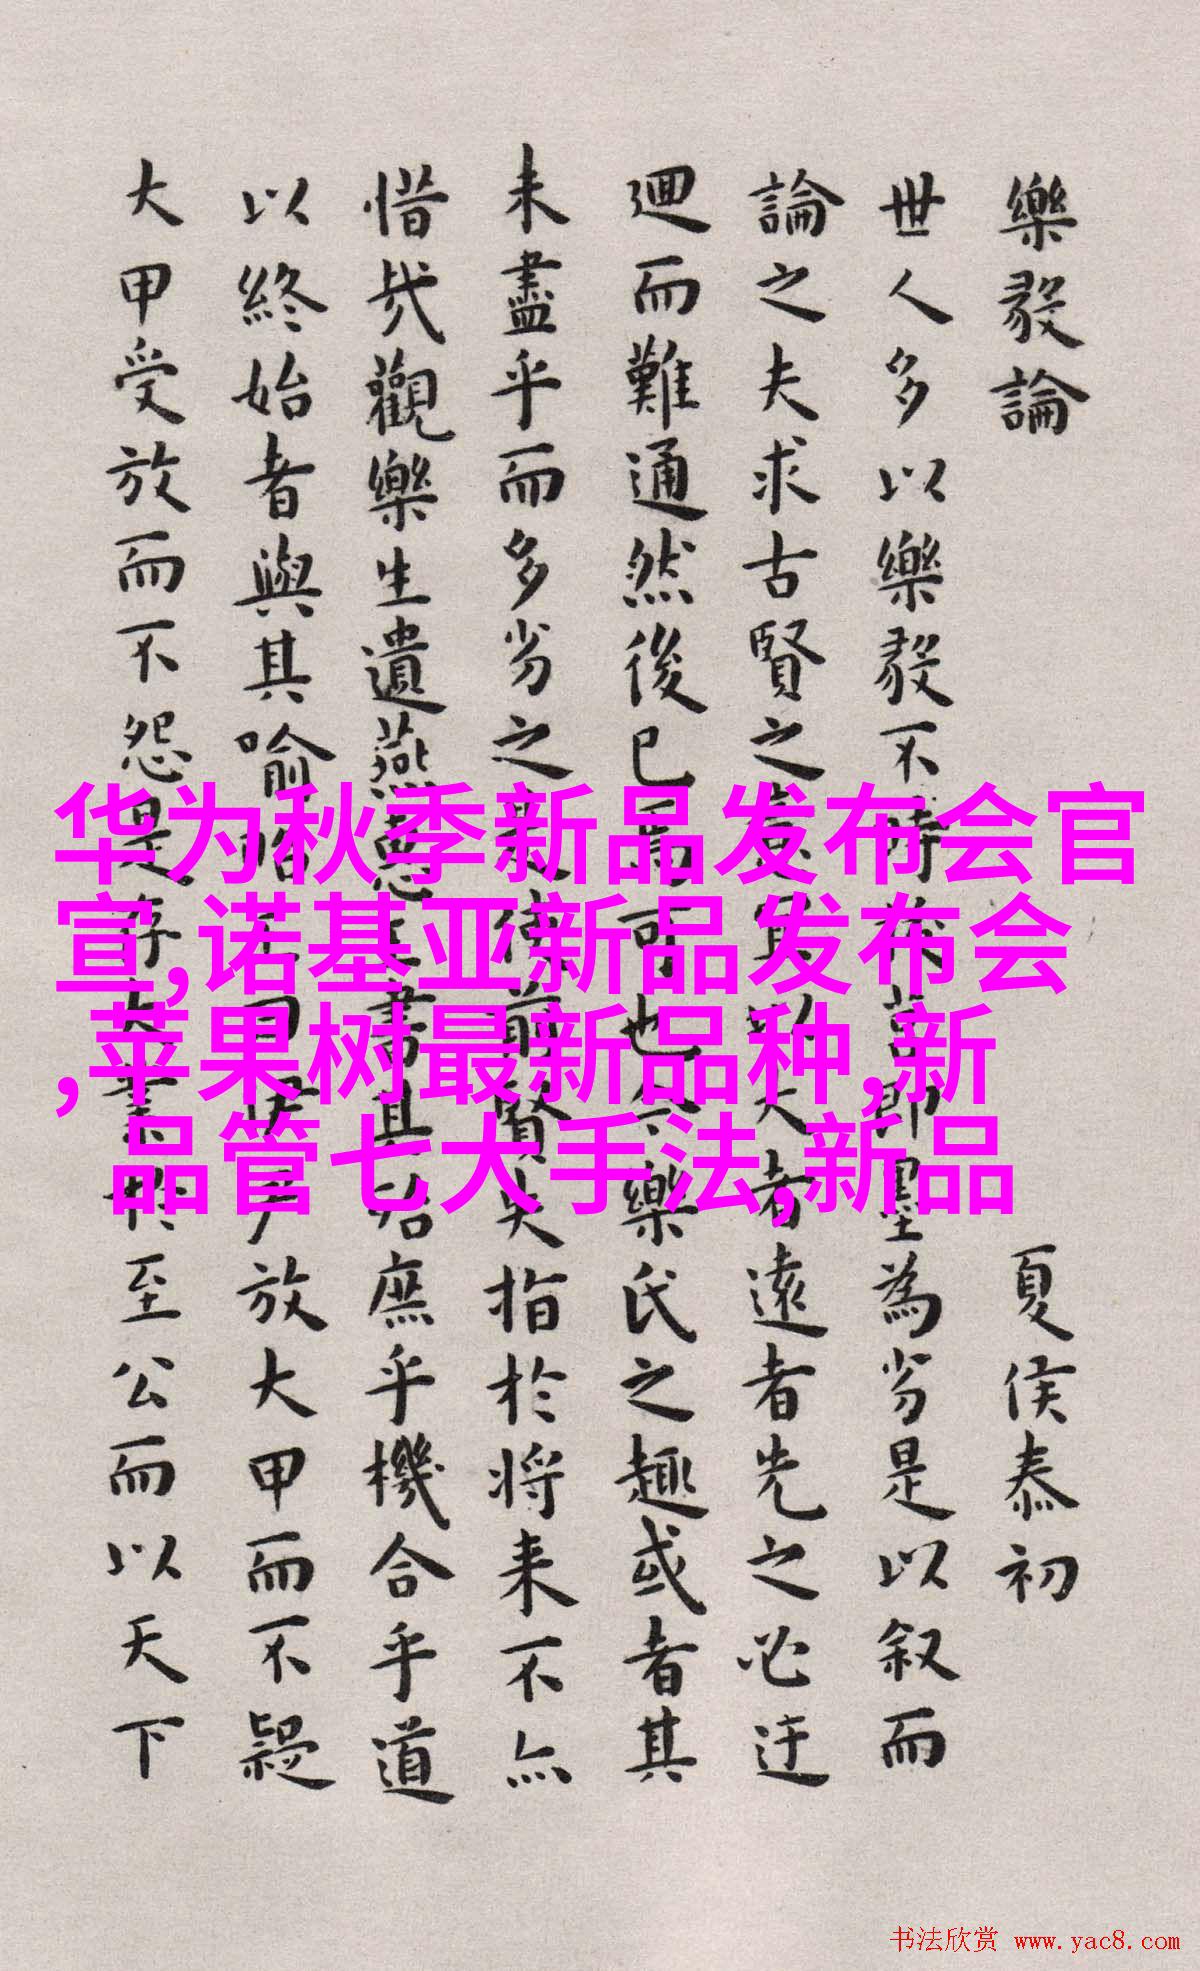 樂毅論 夏侯泰初
世人多以樂毅不時拔莒即墨為劣是以叙而
論之夫求古賢之意宜以大者遠者先之必迂
迴而難通然後已焉可也今樂氏之趣或者其
未盡乎而多劣之是使前賢失指於將来不亦
惜哉觀樂生遺燕惠王書其殆庶乎機合乎道
以終始者與其喻昭王曰伊尹放大甲而不疑
大甲受放而不怨是存大業於至公而以天下
华为秋季新品发布会官
宣,诺基亚新品发布会
,苹果树最新品种,新
品管七大手法,新品
书法欣赏 www.yac8.com